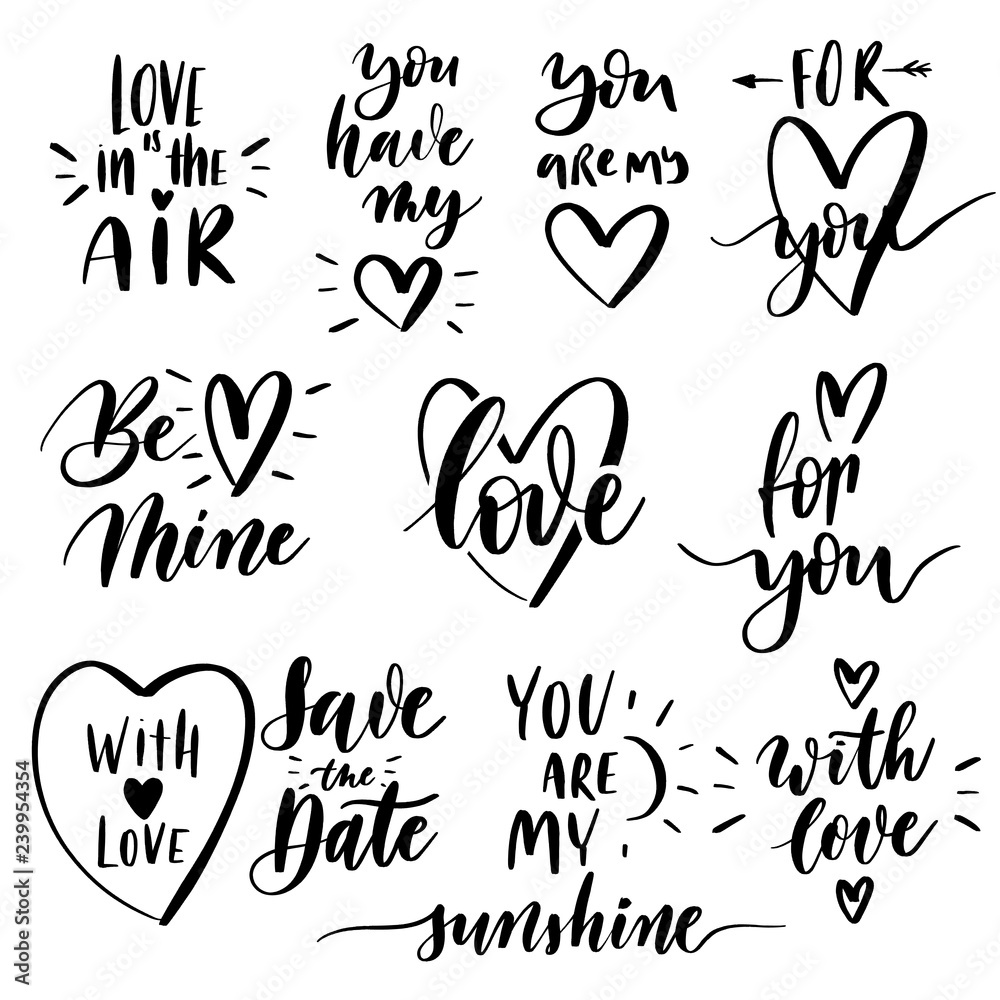 LOVE
IS
in the
AIR
you
have
my
you
are my
FOR
you
Be
Mine
love
for
you
WITH
LOVE
Save
the
Date
YOU
ARE
MY
sunshine
with
love
Adobe Stock | #239954354